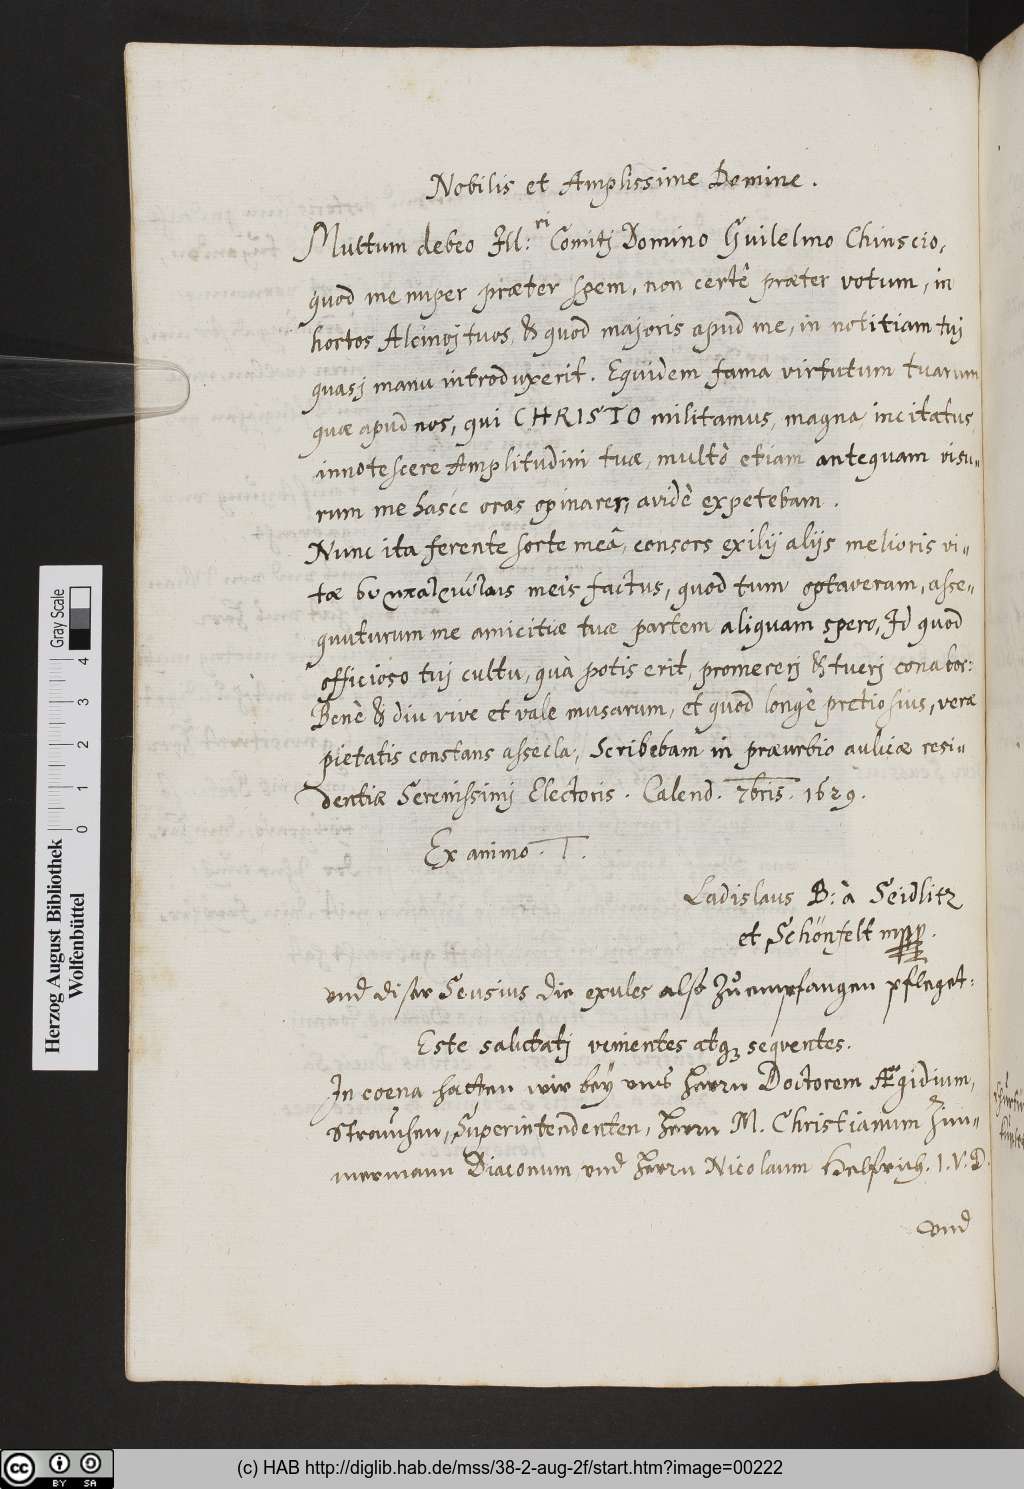 Nobilis et Amplissime Domine.
Multum debeo Ill:ri Comitj Domino Guilelmo Chinscio,
quod me nuper præter spem, non certè præter votum, in
hortos Alcinoj tuos, & quod majoris apud me, in notitiam tuj
quasj manu introduxerit. Equidem fama virtutum tuarum
quæ apud nos, qui CHRISTO militamus, magna, incitatus,
innotescere Amplitudini tuæ, multò etiam antequam visu-
rum me hasce oras opinarer, avidè expetebam.
Nunc ita ferente sorte meâ, consors exilij alijs melioris vi-
tæ meis factus, quod tum optaveram, asse-
quuturum me amicitiæ tuæ partem aliquam spero, Id quod
officioso tuj cultu, quà potis erit, promererj & tuerj conabor:
Benè & diu vive et vale musarum, et quod longè pretiosius, veræ
pietatis constans assecla, Scribebam in præurbio aulicæ resi-
dentiæ Serenissimj Electoris. Calend. 7bris. 1629.
Ex animo. T.
Ladislaus B: à Seidlitz
et Schönfelt mpp.
vnd diser Seusius die exules also zu empfangen pfleget:
Este salutatj venientes atq3 seqventes.
In coena hatten wir bey vns Herrn Doctorem Ægidium,
Strauchen, Superintendenten, Herrn M. Christianum Zim-
mermann Diaconum, vnd Herrn Nicolaum Helfrich. I.V.D.
vnd
Herzog August Bibliothek
Wolfenbüttel
Gray Scale
0 1 2 3 4
cc BY SA
(c) HAB http://diglib.hab.de/mss/38-2-aug-2f/start.htm?image=00222